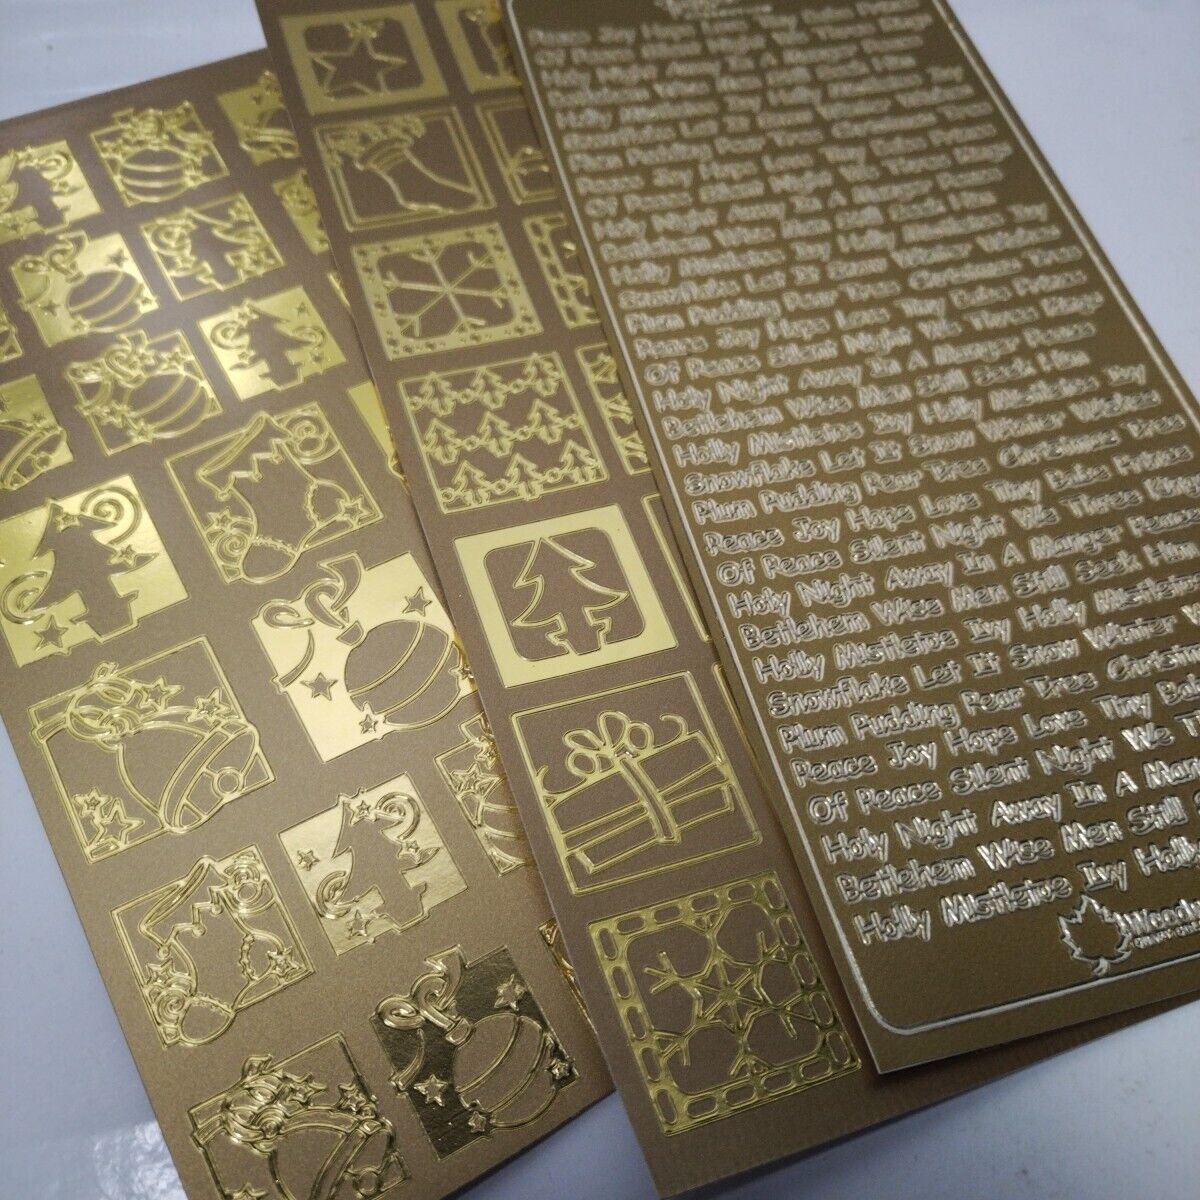 Peace Joy Hope Love Tiny Babe Prince
Of Peace Silent Night We Three Kings
Holy Night Away In A Manger Peace
Bethlehem Wise Men Still Seek Him
Holly Mistletoe Ivy Holly Mistletoe Ivy
Snowflake Let It Snow Winter Wishes
Plum Pudding Pear Tree Christmas Tree
Peace Joy Hope Love Tiny Babe Prince
Of Peace Silent Night We Three Kings
Holy Night Away In A Manger Peace
Bethlehem Wise Men Still Seek Him
Holly Mistletoe Ivy Holly Mistletoe Ivy
Snowflake Let It Snow Winter Wishes
Plum Pudding Pear Tree Christmas Tree
Peace Joy Hope Love Tiny Babe Prince
Of Peace Silent Night We Three Kings
Holy Night Away In A Manger Peace
Bethlehem Wise Men Still Seek Him
Holly Mistletoe Ivy Holly Mistletoe Ivy
Snowflake Let It Snow Winter Wishes
Plum Pudding Pear Tree Christmas Tree
Peace Joy Hope Love Tiny Babe Prince
Of Peace Silent Night We Three Kin
Holy Night Away In A Manger Peace
Bethlehem Wise Men Still Seek Him
Holly Mistletoe Ivy Holly Mistletoe
Snowflake Let It Snow Winter W
Plum Pudding Pear Tree Christm
Peace Joy Hope Love Tiny Bab
Of Peace Silent Night We T
Holy Night Away In A Man
Bethlehem Wise Men Still
Holly Mistletoe Ivy Holly